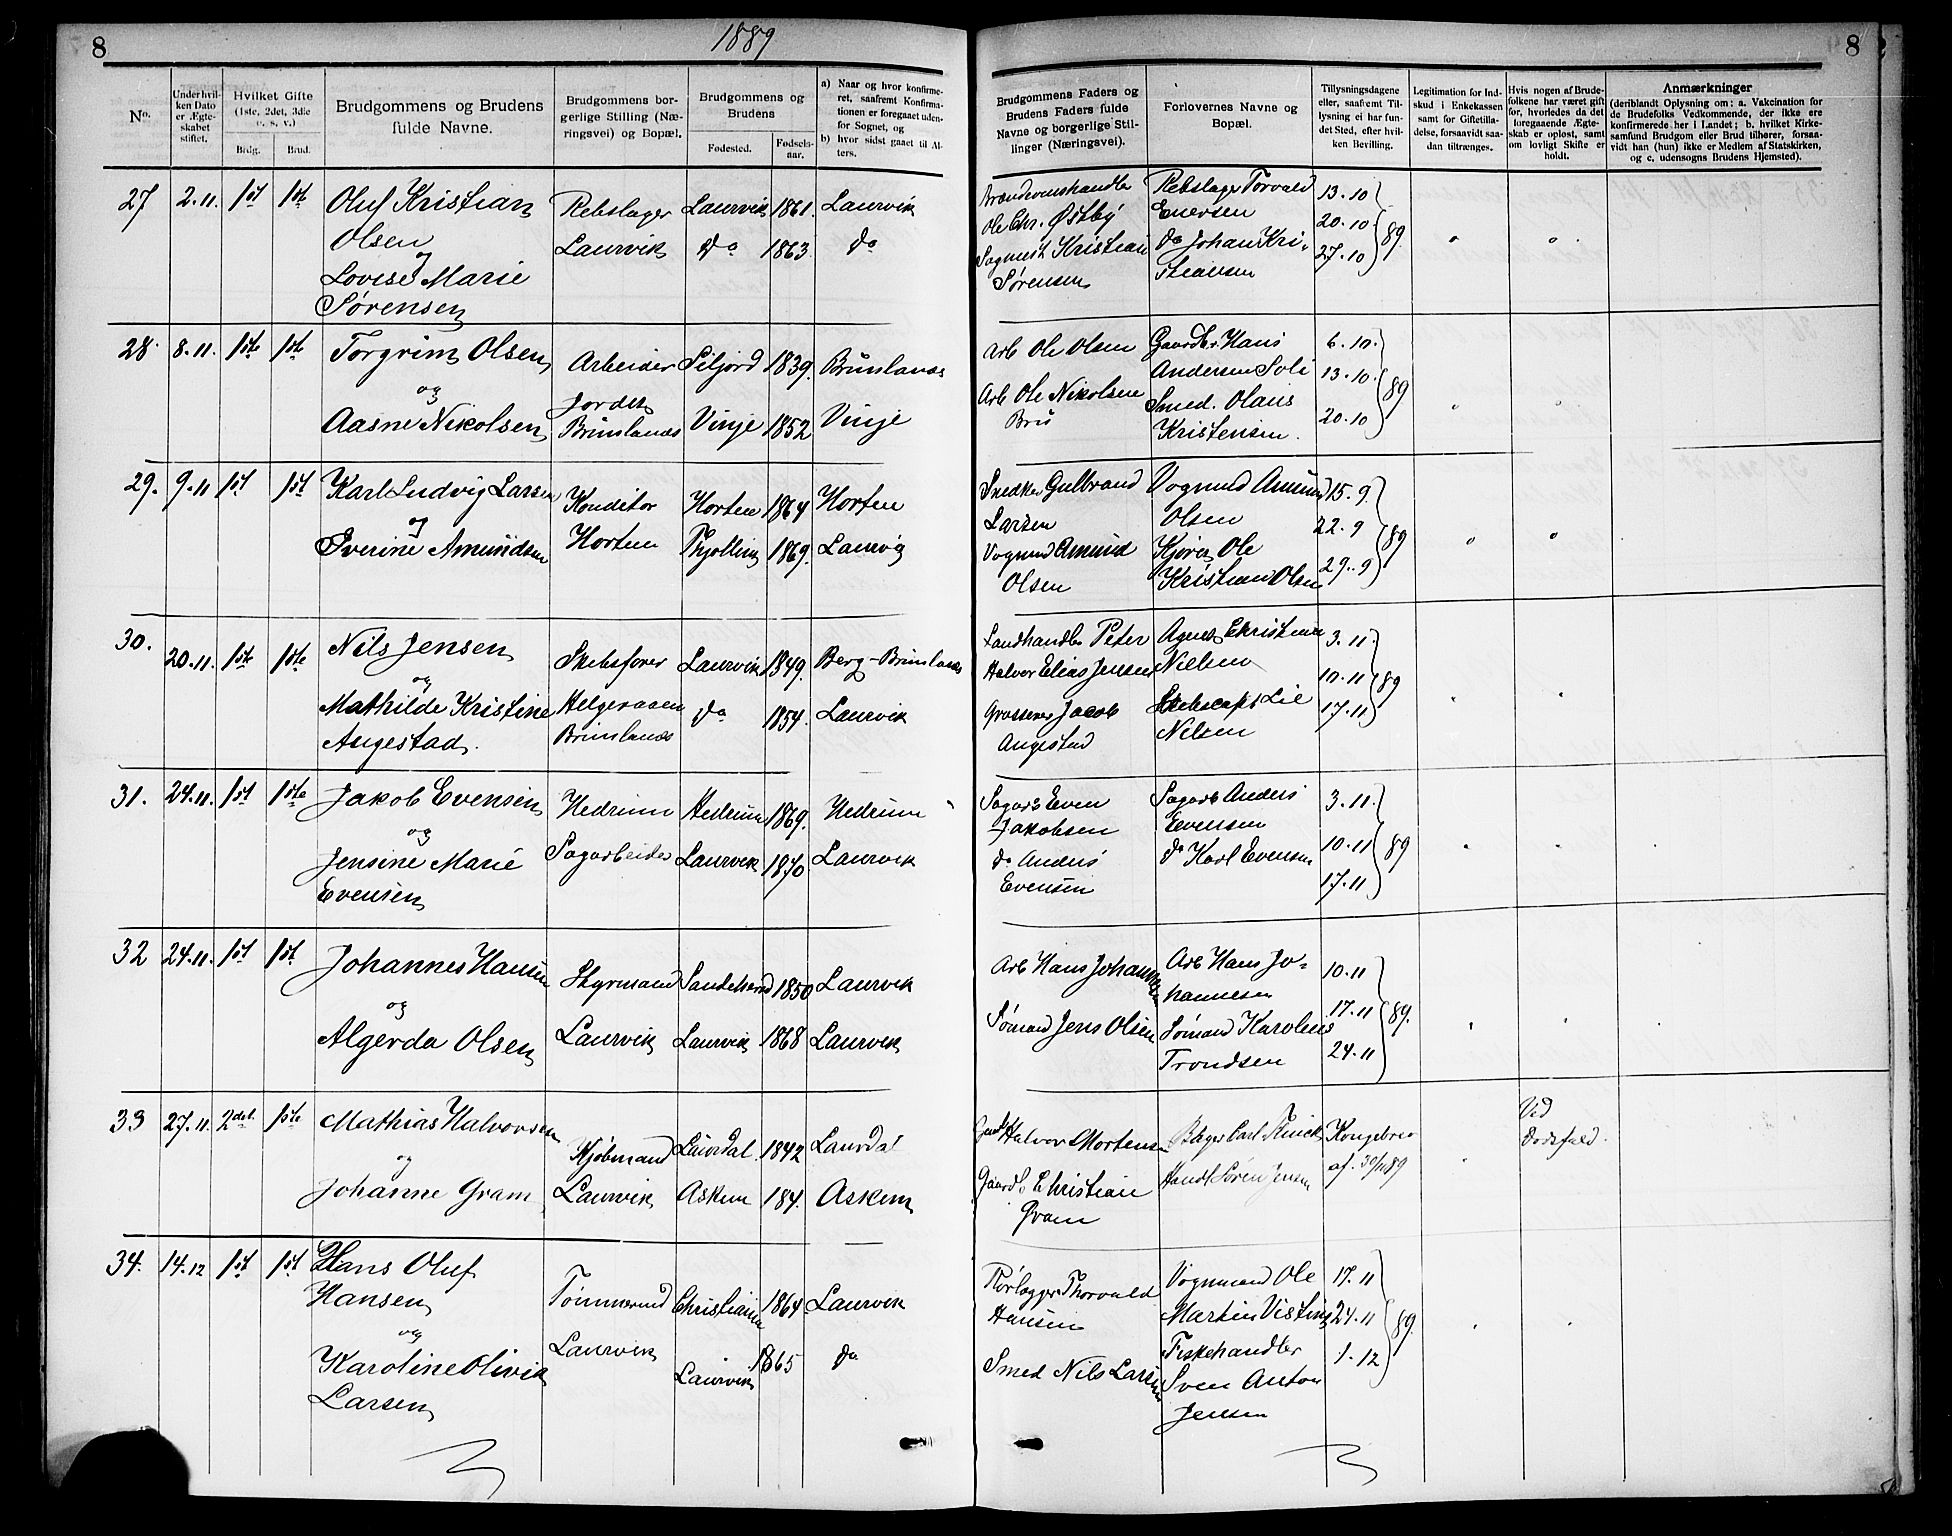 8
1889
8
No.
Under hvil-
ken Dato
er Ægte-
skabet
stiftet.
Hvilket Gifte
(1ste, 2det, 3die
o. s. v.)
Brdg.
Brud.
Brudgommens og Brudens
fulde Navne.
Brudgommens bor-
gerlige Stilling (Næ-
ringsvei) og Bopæl.
Brudgommens og
Brudens
Fødested.
Fødsels-
aar.
a) Naar og hvor konfirme-
ret, saafremt Konfirma-
tionen er foregaaet uden-
for Sognet, og
b) hvor sidst gaaet til Al-
ters.
Brudgommens Faders og
Brudens Faders fulde
Navne og borgerlige Stil-
linger (Næringsvei).
Forlovernes Navne og
Bopæl.
Tillysningsdagene
eller, saafremt Til-
lysning ei har fun-
det Sted, efter hvil-
ken Bevilling.
Legitimation for Ind-
skud i Enkekassen
samt for Giftetilla-
delse, forsaavidt saa-
dan tiltrænges.
Hvis nogen af Brude-
folkene har været gift
før, hvorledes da det
foregaaende Ægte-
skab er opløst, samt
om lovligt Skifte er
holdt.
Anmærkninger
(deriblandt Oplysning om: a. Vakcination for
de Brudefolks Vedkommende, der ikke ere
konfirmerede her i Landet; b. hvilket Kirke-
samfund Brudgom eller Brud tilhører, forsaa-
vidt han (hun) ikke er Medlem af Statskirken,
og c, udensogns Brudens Hjemsted).
27 2.11. 1st 1ste Oluf Kristian Olsen
og
Lovise Marie
Sørensen
Rebslager
Laurvik
Laurvik 1861. Laurvik
Do 1863. do
Ole Chr. Østby
Kristian
Sørensen
Rebslager Torvald
Enersen
do Johan Kri-
stiansen
13.10
20.10
27.10
89.
28. 8.11. 1ste 1ste Torgrim Olsen
og
Aasne Nikolsen
Arbeider
Jordet
Brunlanæs
Siljord 1839. Brunlanæs
Vinje 1852 Vinje
Arb Ole Olsen
Arb Ole Nikolsen
Bru
Gaardbr. Hans
Andersen Soli
Smed. Olaus
Kristensen.
6.10.
13.10.
20.10
89.
29. 9.11 1st 1st Karl Ludvig Larsen
og
Severine Amundsen
Konditor
Horten
Horten 1864 Horten
Thjølling 1869. Laurvig
Snedker Gulbrand
Larsen
Vognmd Amund
Olsen
Vognmd Amund
Olsen
Kjører Ole
Kristian Olsen
15.9.
22.9
29.9
89
30. 20.11. 1ste 1ste Nils Jensen
og
Mathilde Kristine
Angestad.
Skibsfører
Helgeraaen
Brunlanæs
Laurvik 1849. Berg-Brunlanæs
do 1854. Laurvik
Landhandler Peter
Halvor Elias Jensen
Grosserer Jacob
Angestad
Nielsen
Skibscapt Lie
Nilsen
3.11.
10.11
17.11
89
31. 24.11. 1st 1ste Jakob Evensen
og
Jensine Marie
Evensen
Hedrum
Sagarbeider
Hedrum 1869. Hedrum
Laurvik 1870. Laurvik
Sagarb Even
Jakobsen
do Anders
Evensen
Sagarb Anders
Evensen
do Karl Evensen
3.11.
10.11
17.11
89
32 24.11. 1st 1st Johannes Hansen
og
Algerda Olsen
Styrmand
Laurvik
Sandeherred 1850 Laurvik
Laurvik 1868 Laurvik
Arb Hans Johannesen
Sømand Jens Olsen
Arb Hans Jo-
hannesen
Sømand Karolius
Trondsen
10.11
17.11
24.11
89.
33 27.11. 2det. 1ste Mathias Halvorsen
og
Johanne Gram
Kjøbmand
Laurvik
Laurdal. 1842 Laurdal
Askim 184. Askim
Halvor Mortensen
Gaardb Christian
Gram
Carl
Handl Søren Jensen
Kongebrev
af. 30/11 89
Ved
Dødsfald.
34. 14.12 1st 1st Hans Oluf
Hansen
og
Karoline Olivia
Larsen
Tømmermd
Laurvik
Christiania 1864. Laurvik
Laurvik 1865 do
Rørlægger Thorvald
Hansen
Smed Nils Larsen
Vognmand Ole
Martin Visting
Fiskehandler
Sven Anton
Jensen
17.11
24.11
1.12
89.